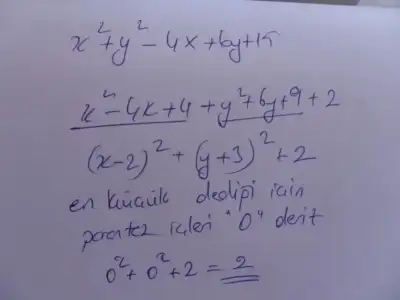 x² + y² - 4x + 6y + 15
x² - 4x + 4 + y² + 6y + 9 + 2
(x-2)² + (y+3)² + 2
en küçük dediği için
parantez içleri "0" derit
0² + 0² + 2 = 2